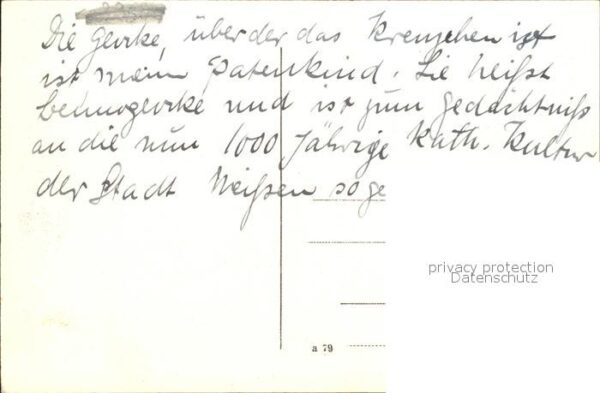 Die Glocke, über der das Kreuzchen ist
ist mein Patenkind. Sie heißt
Bennoglocke und ist zum Gedächtniß
an die nun 1000 Jährige Kath. Kultur
der Stadt Meißen soge
privacy protection
Datenschutz
a 79